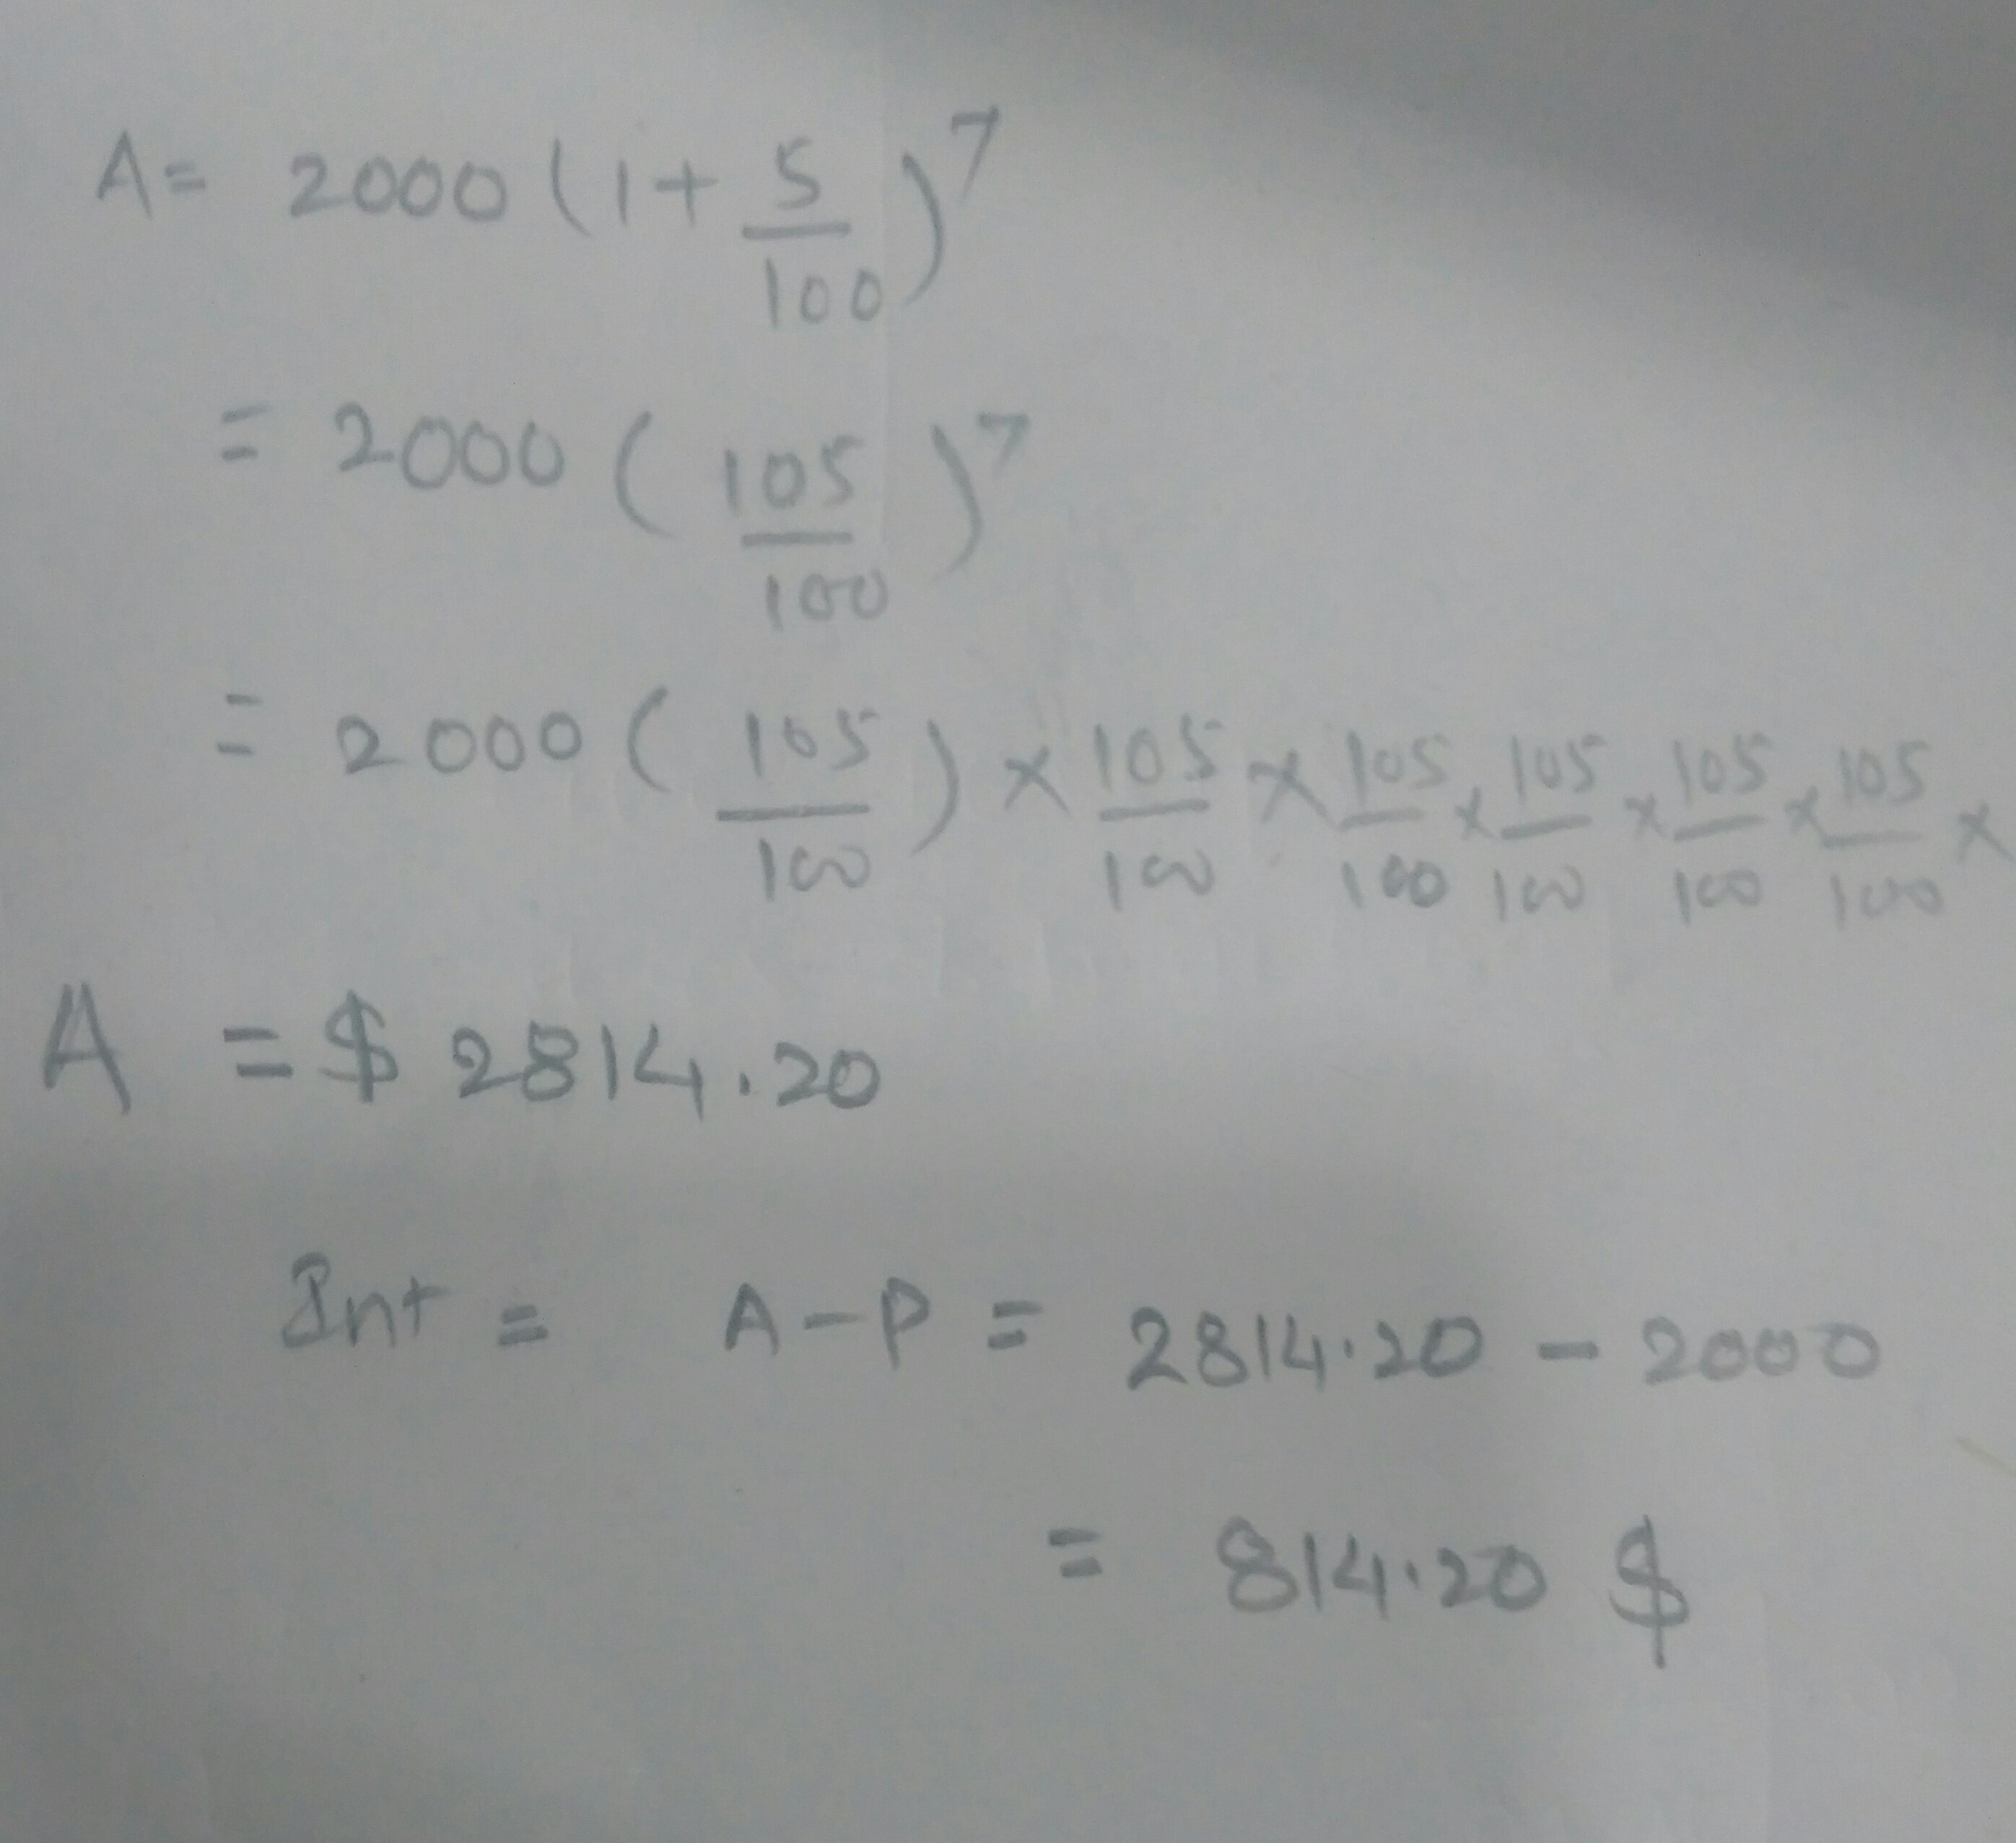 A = 2000 (1 + 5/100)^7
= 2000 (105/100)^7
= 2000 (105/100) × 105/100 × 105/100 × 105/100 × 105/100 × 105/100 ×
A = $ 2814.20
Int = A - P = 2814.20 - 2000
= 814.20 $